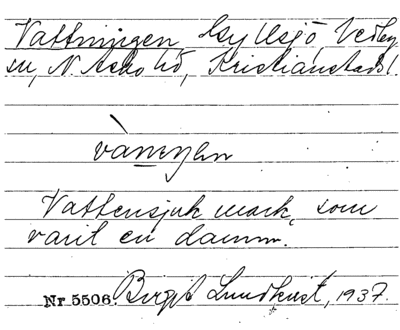 Vattningen Gyllsjö, Vedby
sn, N. Åsbo hd, Kristianstads l.
Vattensjuk mark, som
varit en damm.
Nr 5506. Birgit Lundkvist, 1937.